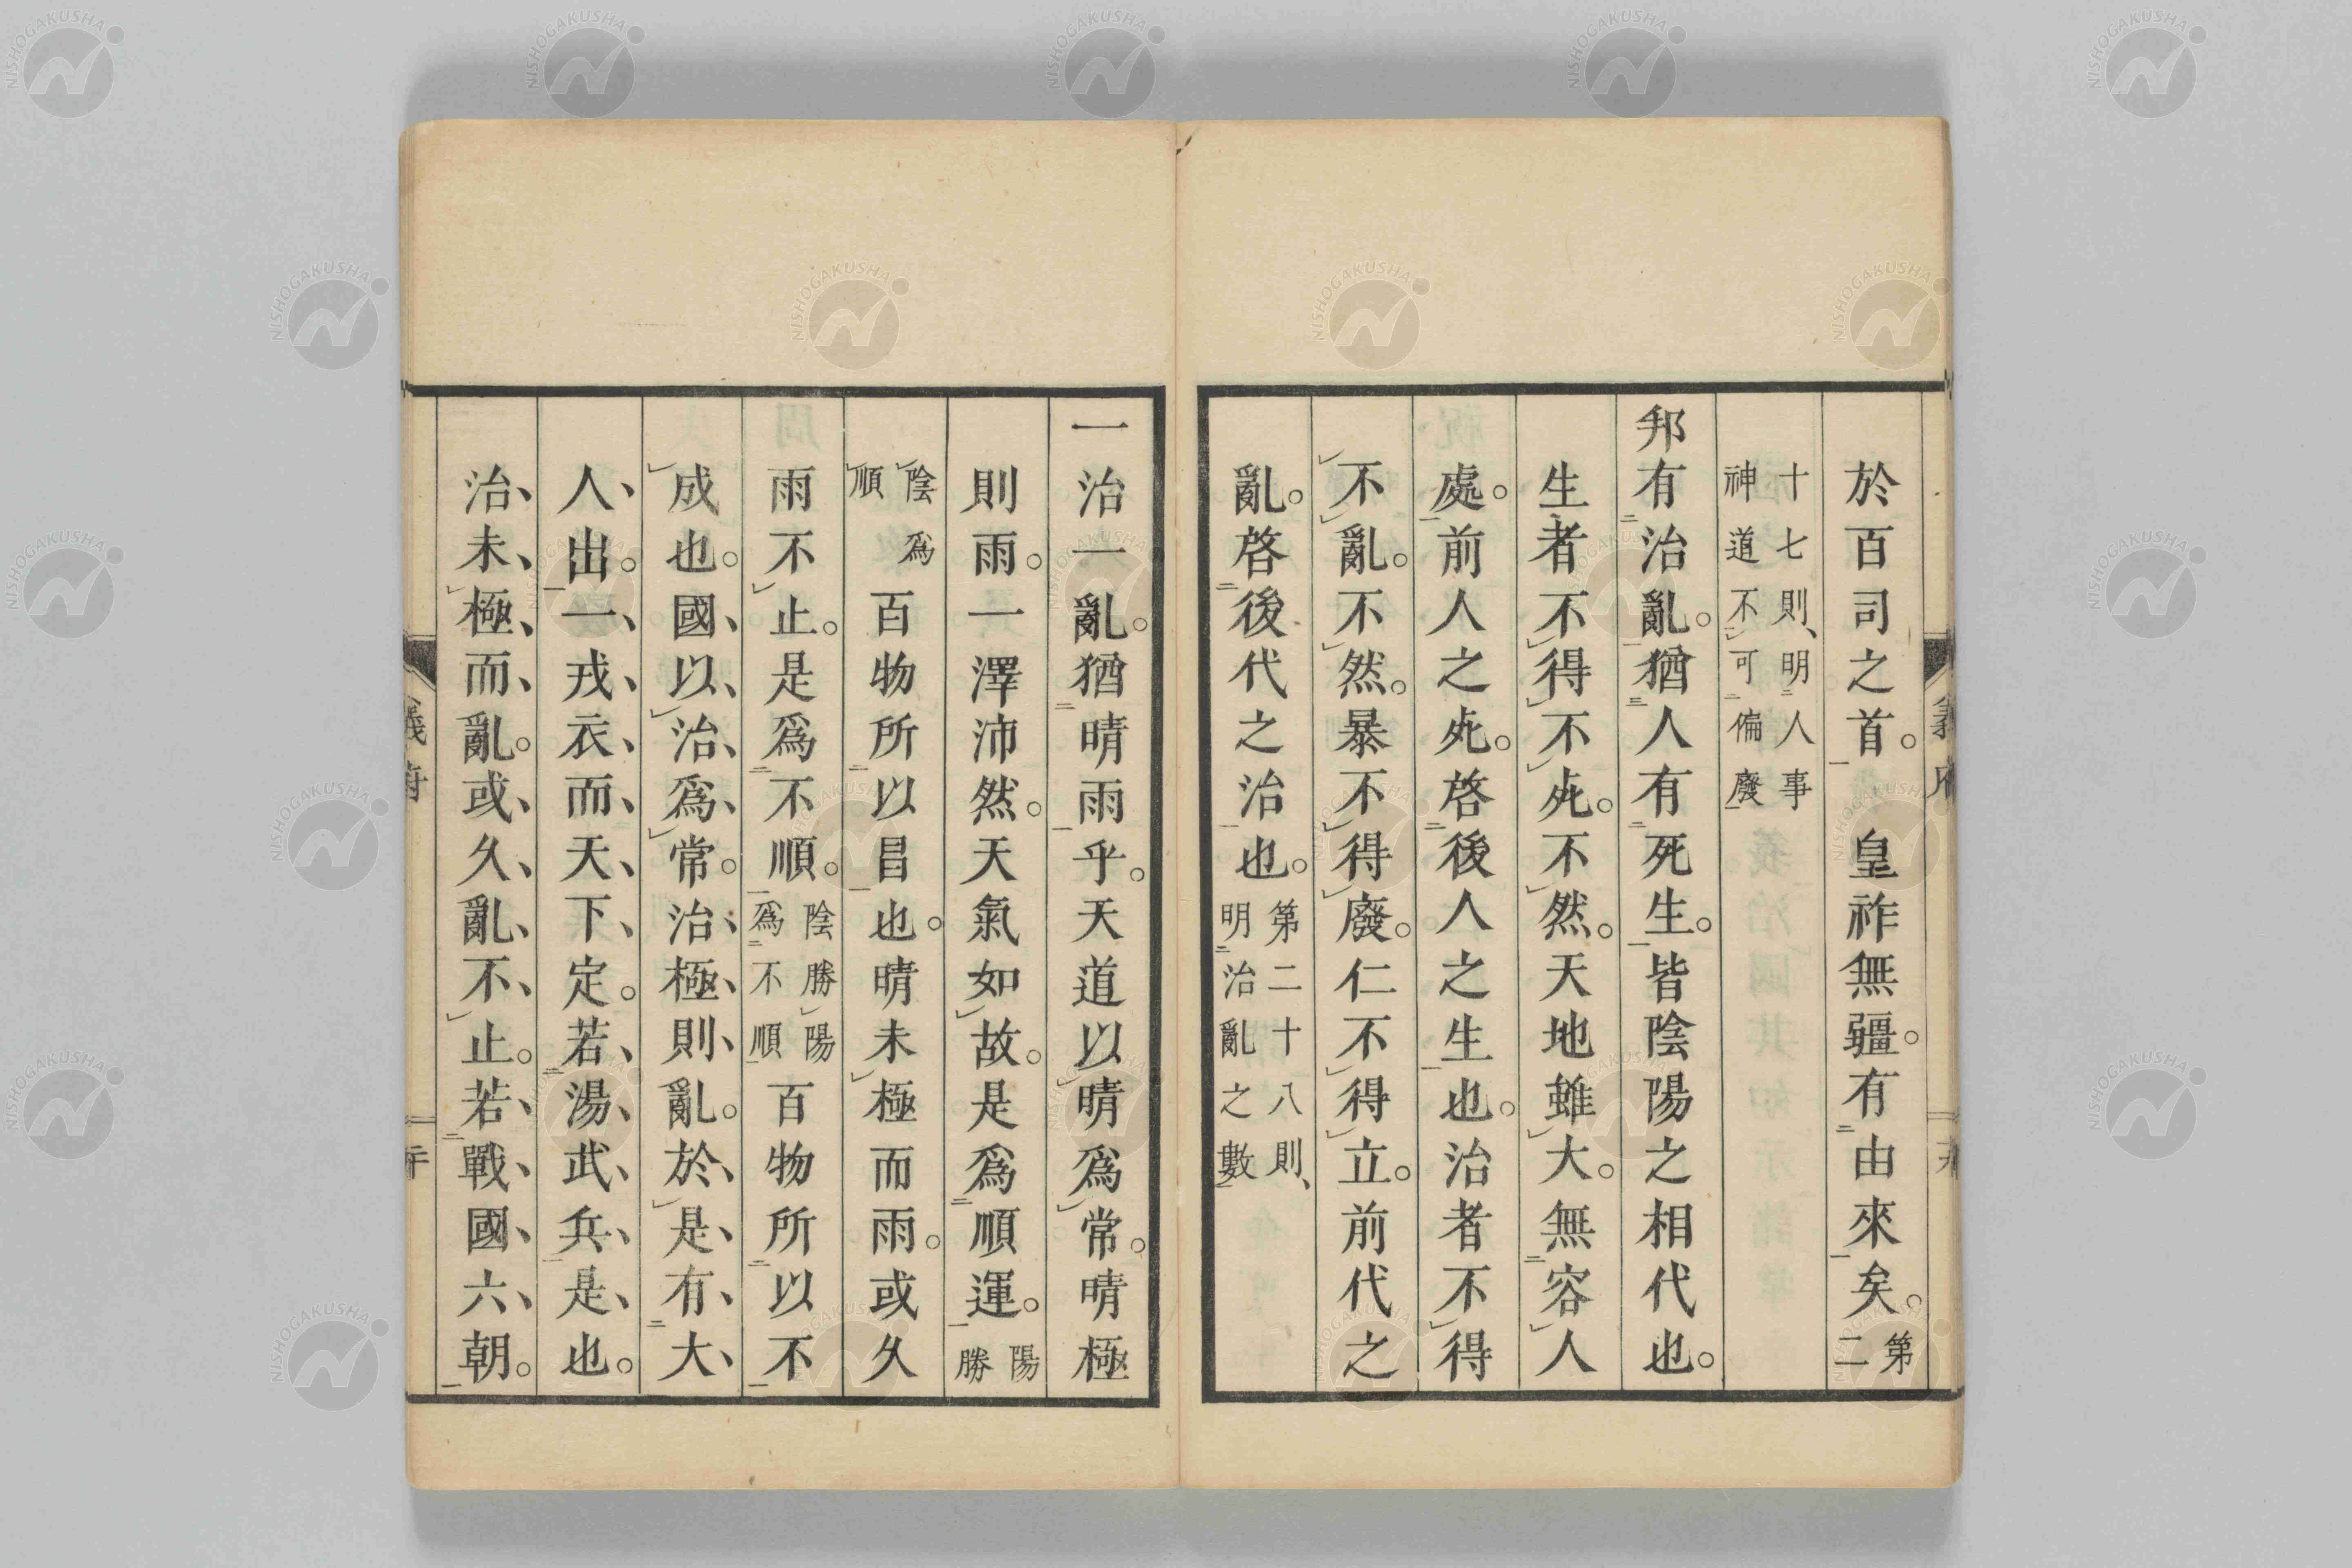 於百司之首。皇祚無疆。有由來矣。第二
十七則、明人事
神道不可偏廢
邦有治亂。猶人有死生。皆陰陽之相代也。
生者不得不死。不然。天地雖大。無容人
處。前人之死。啓後人之生也。治者不得
不亂。不然。暴不得廢。仁不得立。前代之
亂。啓後代之治也。第二十八則、明治亂之數
一治一亂。猶晴雨乎。天道以晴爲常。晴極
則雨。一澤沛然。天氣如故。是爲順運。陽勝
陰爲順百物所以昌也。晴未極而雨。或久
雨不止。是爲不順。陰勝陽爲不順百物所以不
成也。國、以、治、爲、常。治、極、則、亂。於、是、有、大、
人、出。一、戎、衣、而、天、下、定。若、湯、武、兵、是、也。
治、未、極、而、亂。或、久、亂、不、止。若、戰、國、六、朝。
義府
NISHOGAKUSHA